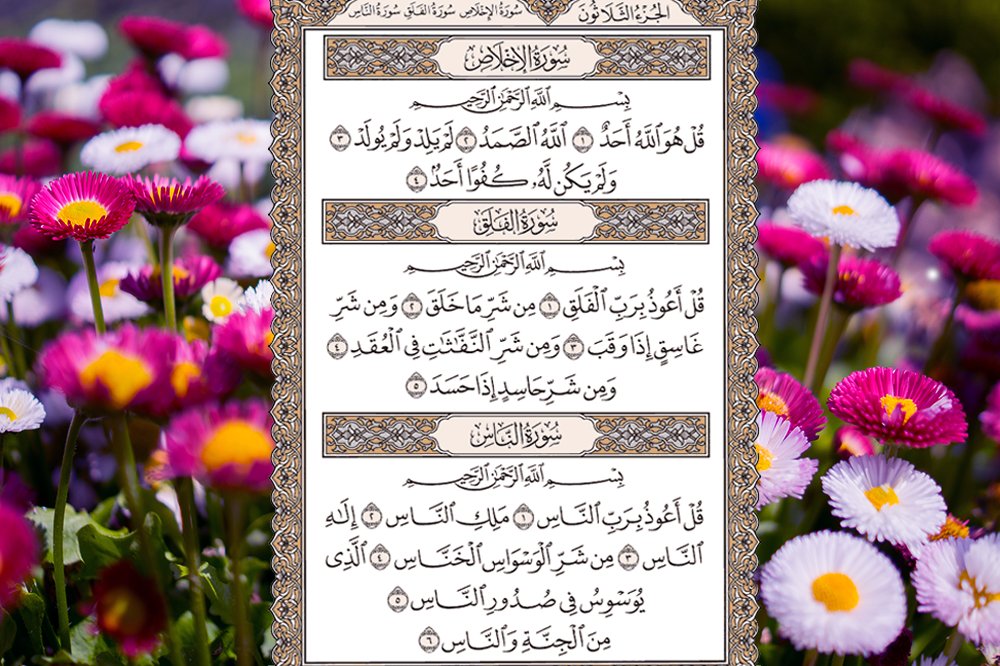 الجزء الثلاثون سورة الإخلاص سورة الفلق سورة الناس
سُورَةُ الإِخْلَاصِ
بِسْمِ ٱللَّهِ ٱلرَّحْمَٰنِ ٱلرَّحِيمِ
قُلْ هُوَ ٱللَّهُ أَحَدٌ ١ ٱللَّهُ ٱلصَّمَدُ ٢ لَمْ يَلِدْ وَلَمْ يُولَدْ ٣
وَلَمْ يَكُن لَّهُۥ كُفُوًا أَحَدٌۢ ٤
سُورَةُ الفَلَقِ
بِسْمِ ٱللَّهِ ٱلرَّحْمَٰنِ ٱلرَّحِيمِ
قُلْ أَعُوذُ بِرَبِّ ٱلْفَلَقِ ١ مِن شَرِّ مَا خَلَقَ ٢ وَمِن شَرِّ
غَاسِقٍ إِذَا وَقَبَ ٣ وَمِن شَرِّ ٱلنَّفَّٰثَٰتِ فِي ٱلْعُقَدِ ٤
وَمِن شَرِّ حَاسِدٍ إِذَا حَسَدَ ٥
سُورَةُ النَّاسِ
بِسْمِ ٱللَّهِ ٱلرَّحْمَٰنِ ٱلرَّحِيمِ
قُلْ أَعُوذُ بِرَبِّ ٱلنَّاسِ ١ مَلِكِ ٱلنَّاسِ ٢ إِلَٰهِ
ٱلنَّاسِ ٣ مِن شَرِّ ٱلْوَسْوَاسِ ٱلْخَنَّاسِ ٤ ٱلَّذِي
يُوَسْوِسُ فِي صُدُورِ ٱلنَّاسِ ٥
مِنَ ٱلْجِنَّةِ وَٱلنَّاسِ ٦